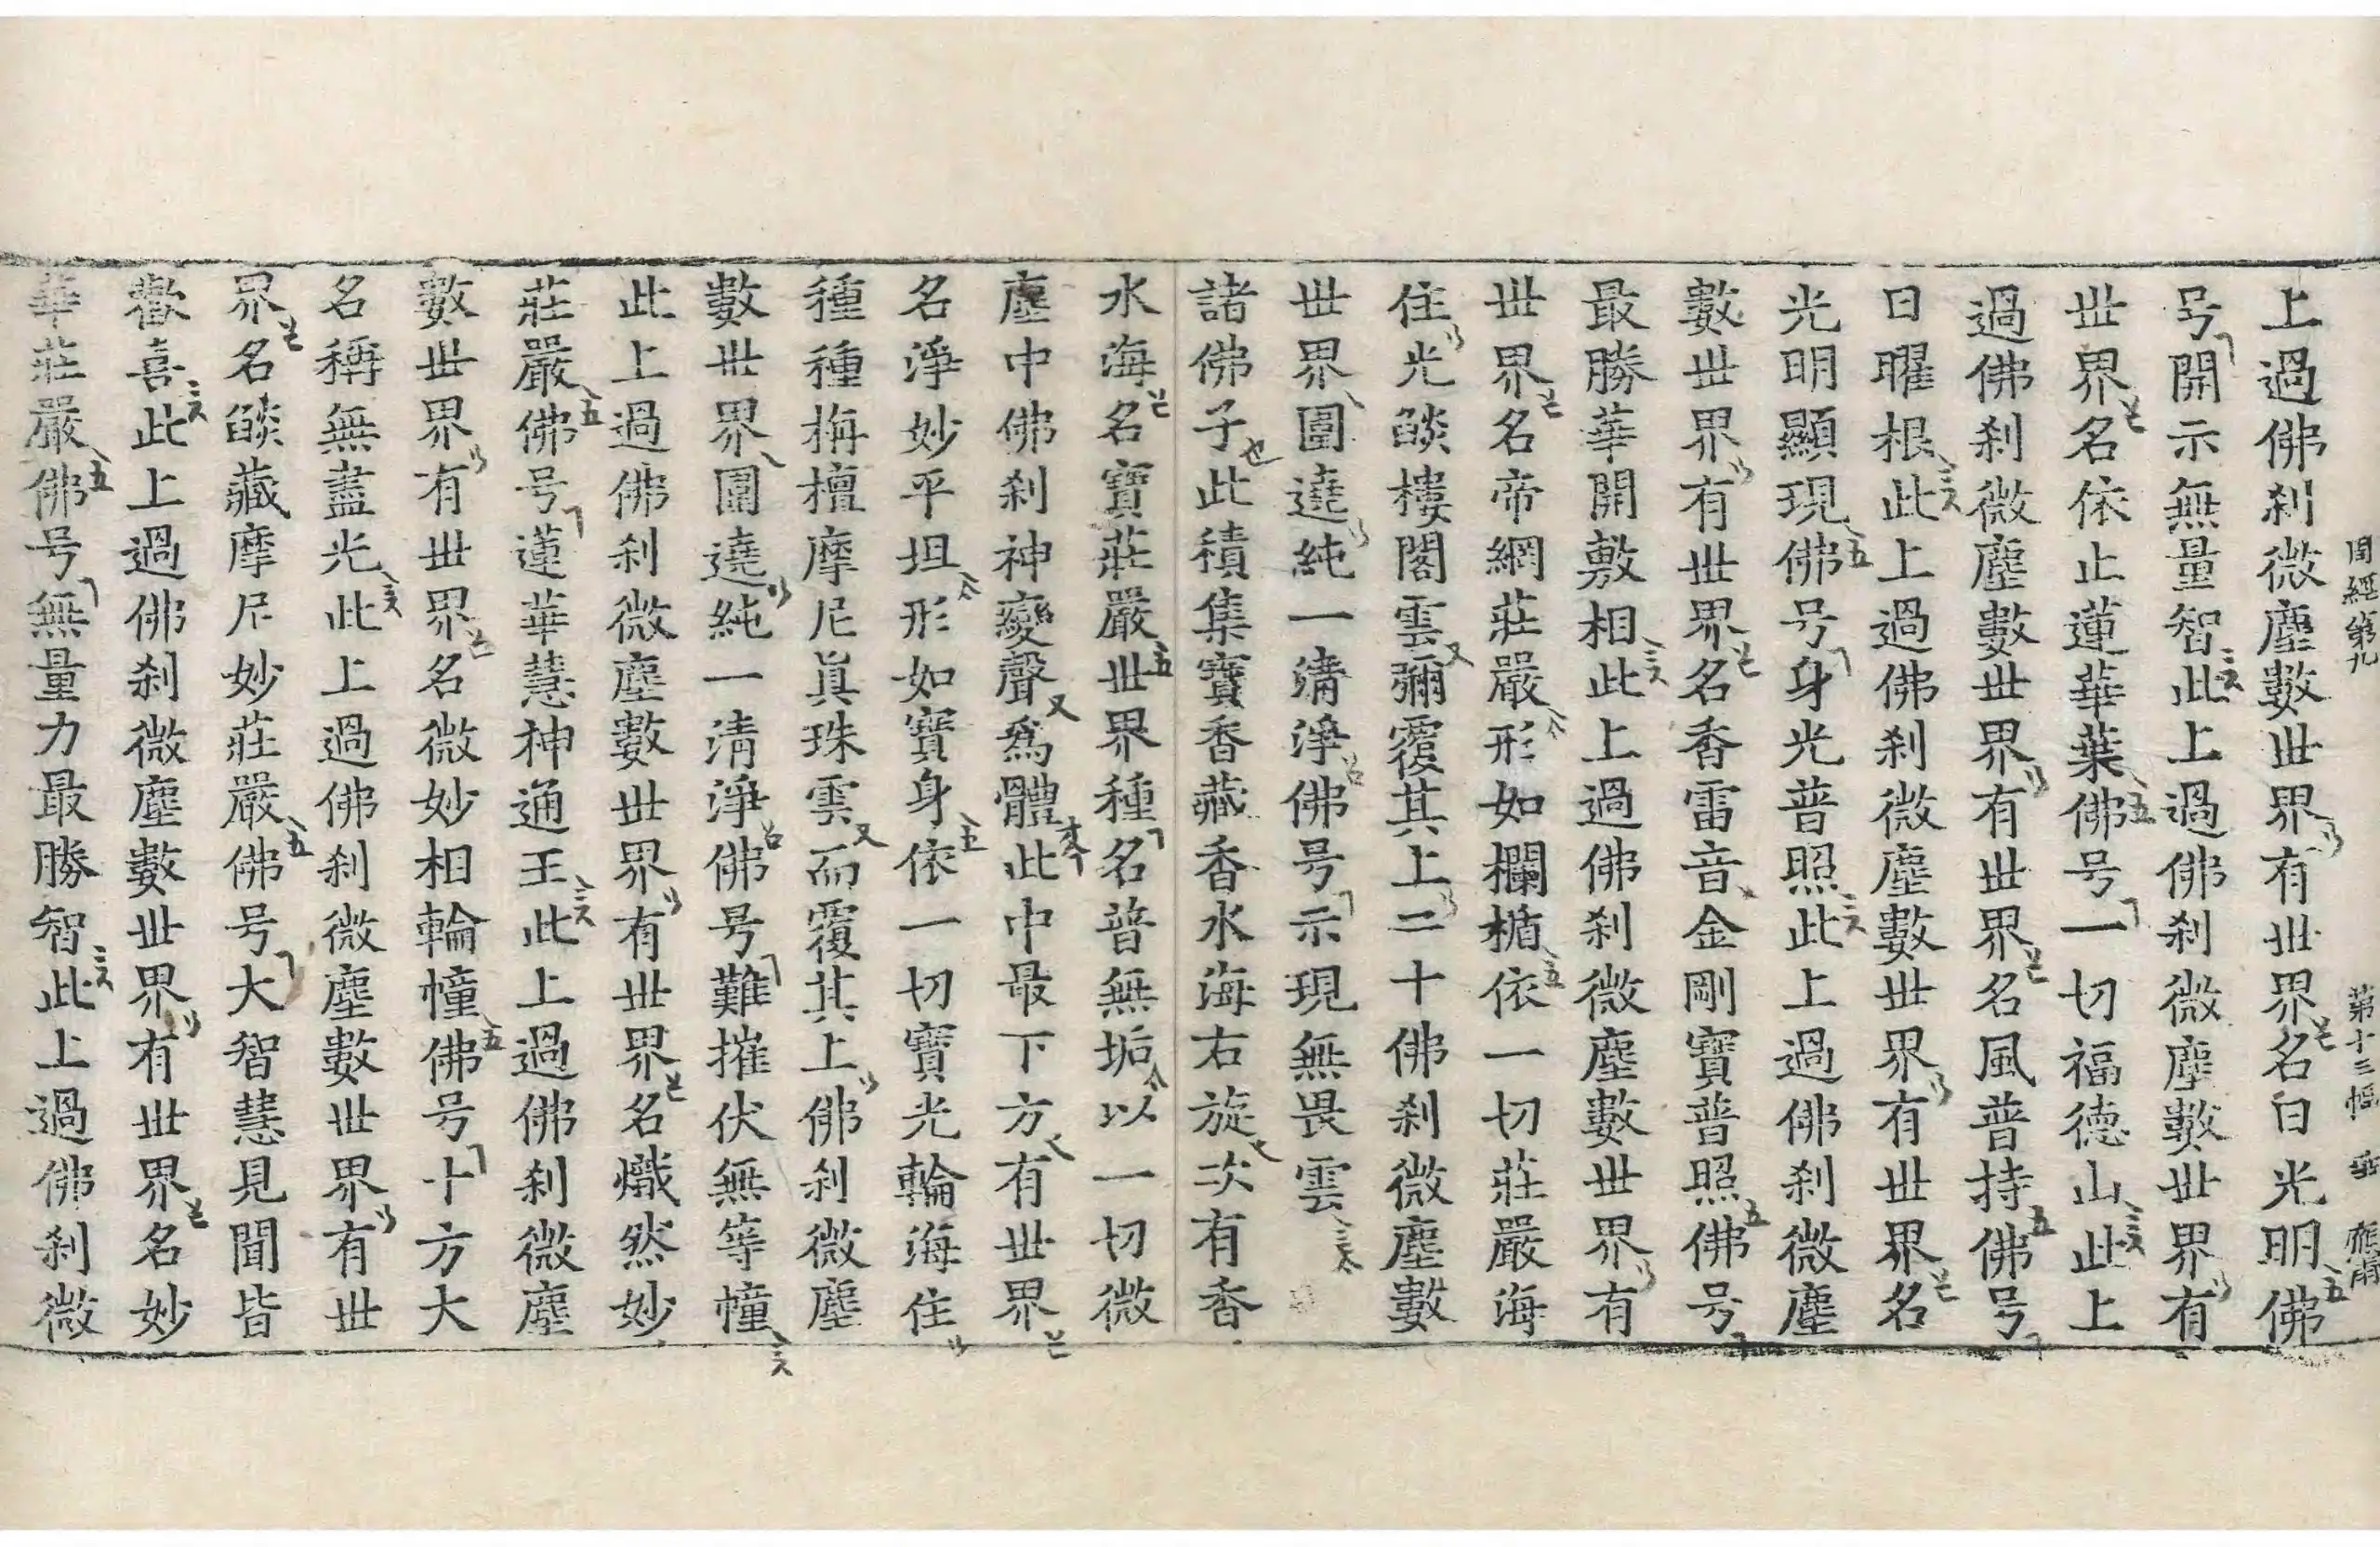 周經第九 第十三幅 垂
上過佛刹微塵數世界有世界名日光明佛
号開示無量智此上過佛刹微塵數世界有
世界名依止蓮華葉佛号一切福德山此上
過佛刹微塵數世界有世界名風普持佛号
日曜根此上過佛刹微塵數世界有世界名
光明顯現佛号身光普照此上過佛刹微塵
數世界有世界名香雷音金剛寶普照佛号
最勝華開敷相此上過佛刹微塵數世界有
世界名帝網莊嚴形如欄楯依一切莊嚴海
住光燄樓閣雲彌覆其上二十佛刹微塵數
世界圍遶純一清淨佛号示現無畏雲
諸佛子此積集寶香藏香水海右旋次有香
水海名寶莊嚴世界種名普無垢以一切微
塵中佛刹神變聲爲體此中最下方有世界
名淨妙平坦形如寶身依一切寶光輪海住
種種栴檀摩尼眞珠雲而覆其上佛刹微塵
數世界圍遶純一清淨佛号難摧伏無等幢
此上過佛刹微塵數世界有世界名熾然妙
莊嚴佛号蓮華慧神通王此上過佛刹微塵
數世界有世界名微妙相輪幢佛号十方大
名稱無盡光此上過佛刹微塵數世界有世
界名燄藏摩尼妙莊嚴佛号大智慧見聞皆
歡喜此上過佛刹微塵數世界有世界名妙
華莊嚴佛号無量力最勝智此上過佛刹微